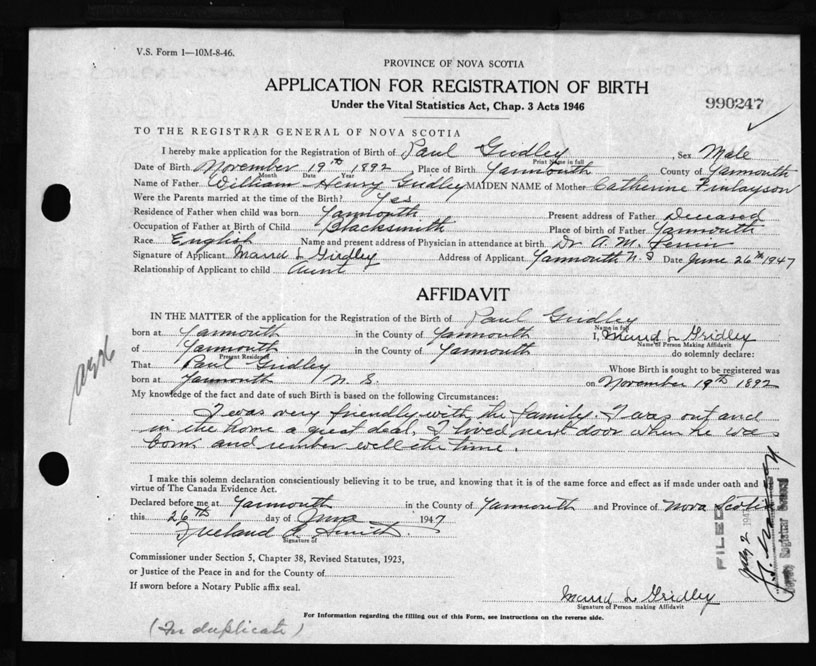 V.S. Form 1—10M-8-46.
PROVINCE OF NOVA SCOTIA
APPLICATION FOR REGISTRATION OF BIRTH
Under the Vital Statistics Act, Chap. 3 Acts 1946
990247
TO THE REGISTRAR GENERAL OF NOVA SCOTIA
I hereby make application for the Registration of Birth of Paul Gridley, Sex Male
Print Name in full
Date of Birth November 19th 1892, Place of Birth Yarmouth County of Yarmouth
Month Date Year
Name of Father William Henry Gridley MAIDEN NAME of Mother Catherine Finlayson
Were the Parents married at the time of the Birth? Yes
Residence of Father when child was born Yarmouth Present address of Father Deceased
Occupation of Father at Birth of Child Blacksmith Place of birth of Father Yarmouth
Race English Name and present address of Physician in attendance at birth Dr A. M.
Signature of Applicant L Gridley Address of Applicant Yarmouth N. S Date June 26th 1947
Relationship of Applicant to child Aunt
AFFIDAVIT
IN THE MATTER of the application for the Registration of the Birth of Paul Gridley
Name in full
born at Yarmouth in the County of Yarmouth I, L Gridley
Name of Person Making Affidavit
of Yarmouth in the County of Yarmouth do solemnly declare:
Present Residence
That Paul Gridley Whose Birth is sought to be registered was
born at Yarmouth N. S. on November 19th 1892
My knowledge of the fact and date of such Birth is based on the following Circumstances:
I was very friendly with the family. I was out and
in the home a great deal. I lived next door when he was
born and rember well the time.
I make this solemn declaration conscientiously believing it to be true, and knowing that it is of the same force and effect as if made under oath and
virtue of The Canada Evidence Act.
Declared before me at Yarmouth in the County of Yarmouth and Province of Nova Scotia
this 26th day of June 1947
Smith
Signature of
Commissioner under Section 5, Chapter 38, Revised Statutes, 1923,
or Justice of the Peace in and for the County of
If sworn before a Notary Public affix seal.
L Gridley
Signature of Person making Affidavit
For Information regarding the filling out of this Form, see instructions on the reverse side.
(In duplicate)
FILED
July 2 1947